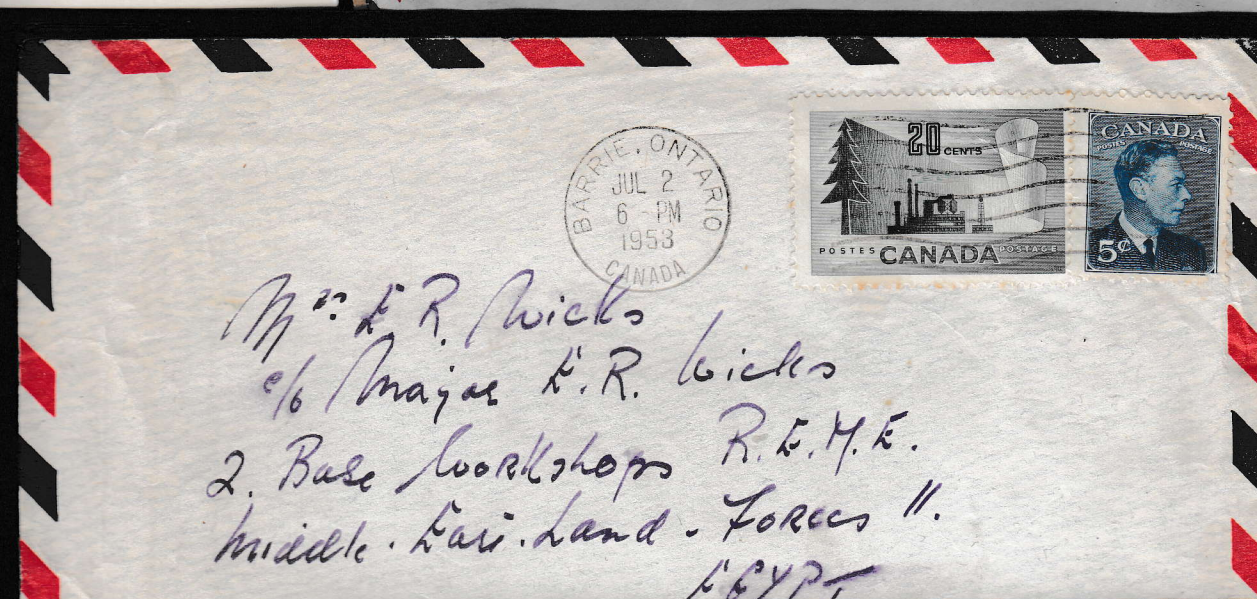 BARRIE, ONTARIO
JUL 2
6 - PM
1953
CANADA
20 CENTS
POSTES CANADA POSTAGE
CANADA
POSTES POSTAGE
5¢
Mrs E R. Wicks
c/o Major E. R. Wicks
2. Base Workshops R.E.M.E.
Middle. East. Land. Forces 11.
EGYPT